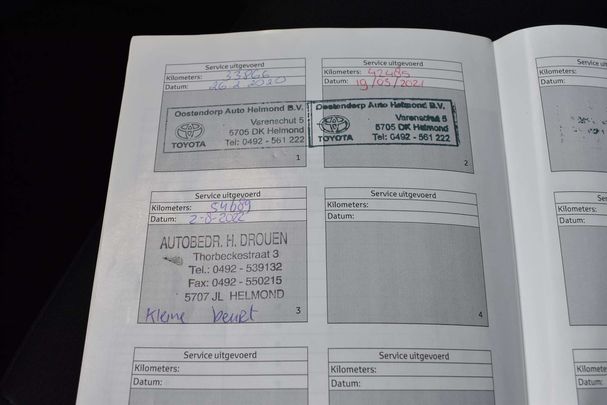 Service uitgevoerd
Kilometers: 33866
Datum: 26 2 2020
Oostendorp Auto Helmond B.V.
Varenschut 5
5705 DK Helmond
TOYOTA Tel: 0492 - 561 222
1
Service uitgevoerd
Kilometers: 42485
Datum: 19/05/2021
Oostendorp Auto Helmond B.V.
Varenschut 5
5705 DK Helmond
TOYOTA Tel: 0492 - 561 222
2
Service uitgevoerd
Kilometers: 54689
Datum: 2-8-2022
AUTOBEDR. H. DROUEN
Thorbeckestraat 3
Tel.: 0492 - 539132
Fax: 0492 - 550215
5707 JL HELMOND
Kleine beurt
3
Service uitgevoerd
Kilometers:
Datum:
4
Service uitgevoerd
Kilometers:
Datum:
Service uitgevoerd
Kilometers:
Datum:
Kilometers
Datum:
Kilomete
Datum:
Kilomet
Datum: